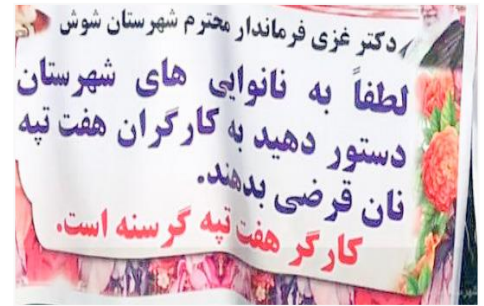 دکتر غزی فرماندار محترم شهرستان شوش
لطفاً به نانوایی های شهرستان
دستور دهید به کارگران هفت تپه
نان قرضی بدهند.
کارگر هفت تپه گرسنه است.